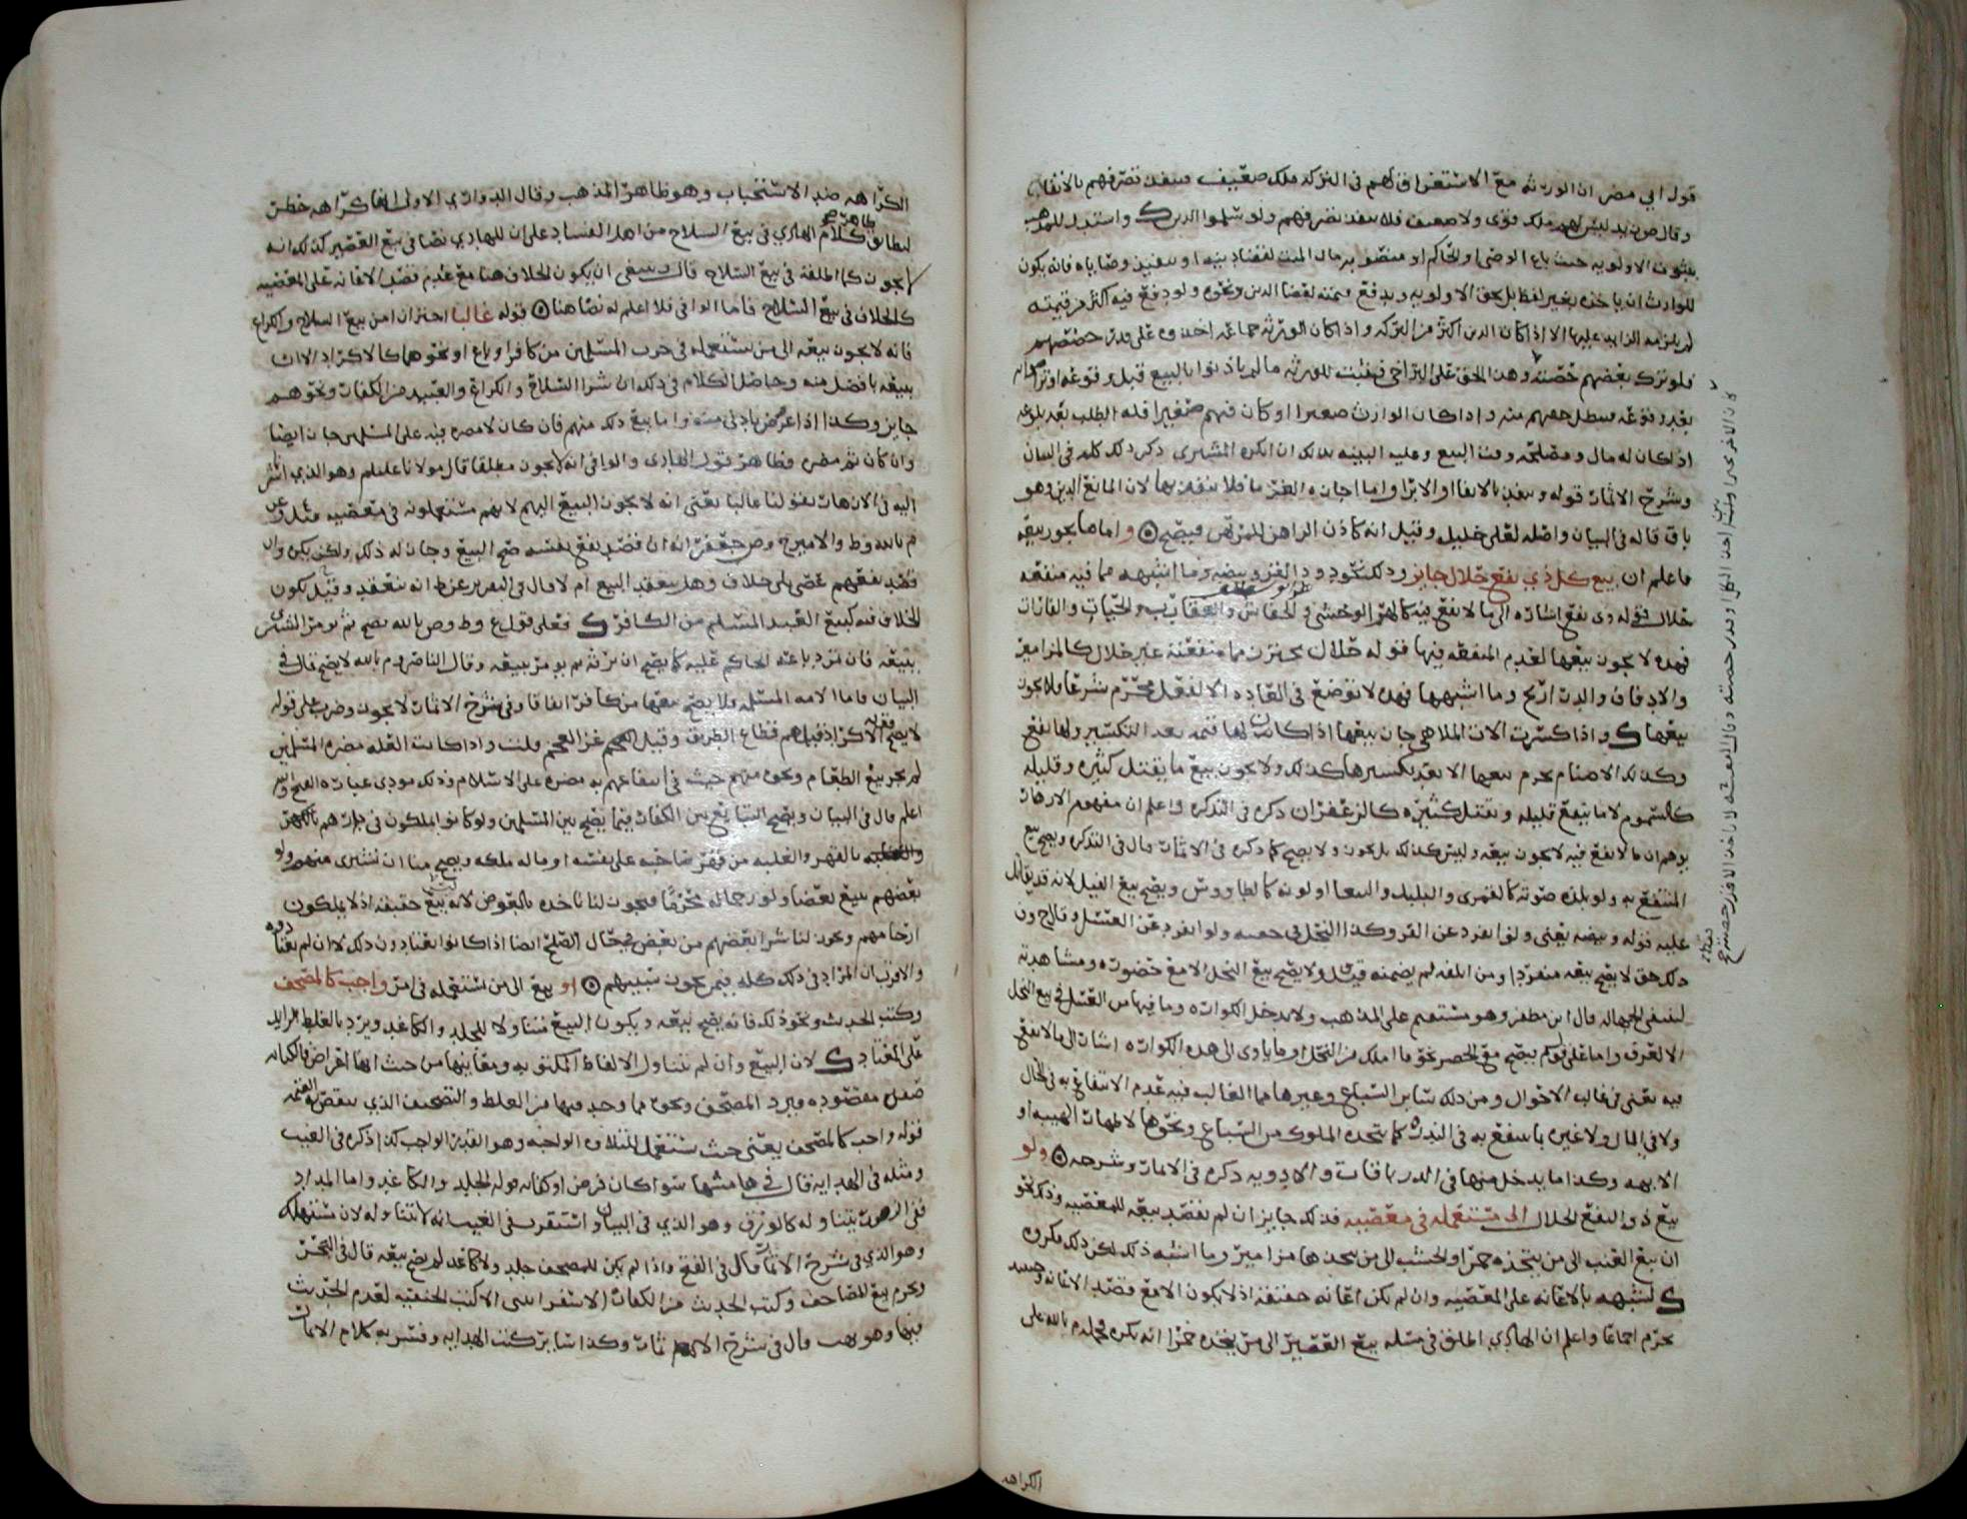 قول ابي مضر ان الورثه مع الاستغراق لهم في التركه ملك ضعيف فينفذ تصرفهم بالانفاذ
وقال ص بالله ليس لهم ملك قوي ولا ضعيف فلا ينفذ تصرفهم ولو سلموا الدين ك واستدل للمذهب
بثبوت الاولويه حيث باع الوصي او الحاكم او متصرف من مال الميت لقضا دينه او تنفيذ وصاياه فانه يكون
للوارث ان ياخذه بغير لفظ بل بحق الاولويه ويدفع قيمته لقضا الدين ونحوه ولو دفع فيه اكثر من قيمته
لم يلزمه الزايد عليها الا اذا كان الدين اكثر من التركه واذا كان الورثه جماعه اخذوه على قدر حصصهم
فلو ترك بعضهم حصته وهذا الحق على التراخي فيثبت للورثه ما لم ياذنوا بالبيع قبل وقوعه او تراضوا به
بعد وقوعه فيبطل حقهم منه واذا كان الوارث صغيرا او كان فيهم صغيرا فله الطلب بعد بلوغه
اذا كان له مال ومصلحه وقت البيع وعليه البينه بذلك ان انكره المشتري ذكر ذلك كله في البيان
وشرح الاثمار قوله وينفذ بالايفا او الابرا واما اجازه الغرما فلا ينفذ بها لان المانع الدين وهو
باق قاله في البيان واصله لعلي خليل وقيل انه كاذن الراهن للمرتهن فيصح ۞ واما ما يجوز بيعه
فاعلم ان بيع كل ذي نفع حلال جايز وذلك كدود القز وبيضه وما اشبهه مما فيه منفعه
حلال قوله ذي نفع اشاره الى ما لا نفع فيه كالهر الوحشي والخفاش والعقارب والحيات والفارات
فهذه لا يجوز بيعها لعدم المنفعه فيها قوله حلال يحترز مما منفعته غير حلال كالمزامير
والادفاف والدراريج وما اشبهها فهذه لا توضع في العاده الا لفعل محرم شرعا ولا يجوز
بيعها ك واذا كسرت الات الملاهي جاز بيعها اذا كان لها قيمه بعد التكسير ولها نفع
وكذلك الاصنام يحرم بيعها الا بعد تكسيرها كذلك ولا يجوز بيع ما يقتل كثيره وقليله
كالسموم لا ما ينفع قليله ويقتل كثيره كالزعفران ذكره في التذكره واعلم ان مفهوم الازهار
يوهم ان ما لا نفع فيه لا يجوز بيعه وليس كذلك بل يجوز ولا يصح كما ذكره في الاثمار قال في التذكره ويصح بيع
المنتفع به ولو بلذه صوته كالقمري والبلبل والببغا او لونه كالطاووس ويصح بيع الفيل لانه قد يقاتل
عليه قوله وبيضه يعني ولو انفرد عن القز وكذا النحل في جبحه ولو انفرد عن العسل وقال ح ون
ذلك حق لا يصح بيعه منفردا ومن اتلفه لم يضمنه قيل ولا يصح بيع النحل الا مع حضوره ومشاهدته
لتنتفي الجهاله قال ابن مظفر وهو مستقيم على المذهب ولا يدخل الكواره وما فيها من العسل في بيع النحل
الا لعرف واما على قولهم يصح مع الحصر نحو ما املك من النحل او ما ياوي الى هذه الكواره اشار الى ما لا نفع
فيه يعني في غالب الاحوال ومن ذلك ساير السباع وغيرها مما الغالب فيه عدم الانتفاع به في الحال
ولا في المال ولا غيره بما ينتفع به في الندره كما يتخذه الملوك من السباع ونحوها لاظهار الهيبه او
الابهه وكذا ما يدخل منها في الدرياقات والادويه ذكره في الاثمار وشرحه ۞ ولو
بيع ذو النفع الحلال الى مستعمله في معصيه فذلك جايز ان لم يقصد بيعه للمعصيه وذلك نحو
ان يبيع العنب الى من يتخذه خمرا او الخشب الى من يتخذها مزامير وما اشبه ذلك لكن ذلك مكروه
ك لشبهه بالاعانه على المعصيه وان لم تكن اعانه حقيقه اذ لا يكون الا مع قصد الاعانه وحينئذ
يحرم اجماعا واعلم ان الهادي اطلق في مسله بيع العصير الى من يتخذه خمرا انه يكره فحمله م بالله على
الكراهه
الكراهه ضد الاستحباب وهو ظاهر المذهب وقال الدواري الاولى انها كراهه حظر
ليطابق ظاهر كلام الهادي في بيع السلاح من اهل الفساد على ان للهادي نصا في بيع العصير كذلك انه
لا يجوز كما اطلقه في بيع السلاح قال وينبغي ان يكون الخلاف هنا مع عدم قصد الاعانه على المعصيه
كالخلاف في بيع السلاح فاما الوافي فلا اعلم له نصا هنا ۞ قوله غالبا احتراز من بيع السلاح والكراع
فانه لا يجوز بيعه الى من يستعمله في حرب المسلمين من كافر او باغ او نحوهما كالاكراد الا ان
يبيعه بافضل منه وحاصل الكلام في ذلك ان شرا السلاح والكراع والعبيد من الكفار ونحوهم
جايز وكذا اذا عرض بادنى منه واما بيع ذلك منهم فان كان لا مضره فيه على المسلمين جاز ايضا
وان كان ثم مضره فظاهر قول الهادي والوافي انه لا يجوز مطلقا قال مولانا عليلم وهو الذي اشر
اليه في الازهار بقولنا غالبا يعني انه لا يجوز البيع اليهم لانهم يستعملونه في معصيه
م بالله وط والامير ح وص جعفر انه ان قصد نفع نفسه صح البيع وجاز له ذلك ولكن يكره وان
قصد نفعهم عصى بلا خلاف وهل ينعقد البيع ام لا قال في التقرير عن ط انه ينعقد وقيل يكون
الخلاف فيه كبيع العبد المسلم من الكافر ك فعلى قول ع وط وص بالله يصح ثم يومر المشتري
ببيعه فان تمرد باعه الحاكم عليه كما يصح ان يرثه ثم يومر ببيعه وقال الناصر وم بالله لا يصح قال في
البيان فاما الامه المسلمه فلا يصح بيعها من كافر اتفاقا وفي شرح الاثمار لا يجوز وضرب على قوله
لا يصح قوله الاكراد قيل هم قطاع الطريق وقيل العجم غز العجم قلت واذا كانت العله مضره المسلمين
لم يجز بيع الطعام ونحوه منهم حيث في انتفاعهم به مضره على الاسلام وذلك مودى عباره الفتح والله
اعلم قال في البيان ويصح التبايع بين الكفار فيما يصح بين المسلمين ولو كانوا يملكون في دارهم بالقهر
والغلبه بالقهر والغلبه من قهر صاحبه على نفسه او ماله ملكه ويصح منا ان نشتري منهم ولو
بعضهم بيع بعضا ولو رحما له محرما فيجوز لنا ناخذه بالعوض لانه ليس بيع حقيقه اذ لا يملكون
ارحامهم ويجوز لنا شرا بعضهم من بعض في حال الصلح ايضا اذا كانوا يعتادون ذلك لا ان لم يعتادوه
والاقرب ان المراد في ذلك كله فيمن يجوز سبيهم ۞ او بيع الى من يستعمله في امر واجب كالمصحف
وكتب الحديث ونحو ذلك فانه يصح بيعه ويكون البيع متناولا للجلد والكاغد ويرد بالغلط الزايد
على المعتاد ك لان البيع وان لم يتناول الالفاظ المكتوبه ومعانيها من حيث انها اعراض فالكتابه
مقصوده فيرد المصحف ونحوه بما وجد فيها من الغلط والتصحيف الذي ينقص القيمه
قوله واجب كالمصحف يعني حيث يستعمل للتلاوه الواجبه وهو القدر الواجب كذا ذكره في الغيث
ومثله في الهدايه قال في هامشها سوا كان فرض او كفايه قوله الجلد والكاغد واما المداد
ففي الزهور يتناوله كالورق وهو الذي في البيان واستقرب في الغيث انه لا يتناوله لانه مستهلك
وهو الذي في شرح الاثمار قال في الفتح واذا لم يكن للمصحف جلد ولا كاغد لم يصح بيعه قال في البحر
ويحرم بيع المصاحف وكتب الحديث من الكفار الاستفرا لا كتب الحنفيه لعدم الحديث
فيها وهو قال في شرح الاثمار وكذا ساير كتب الهدايه وفسر به كلام الاثمار